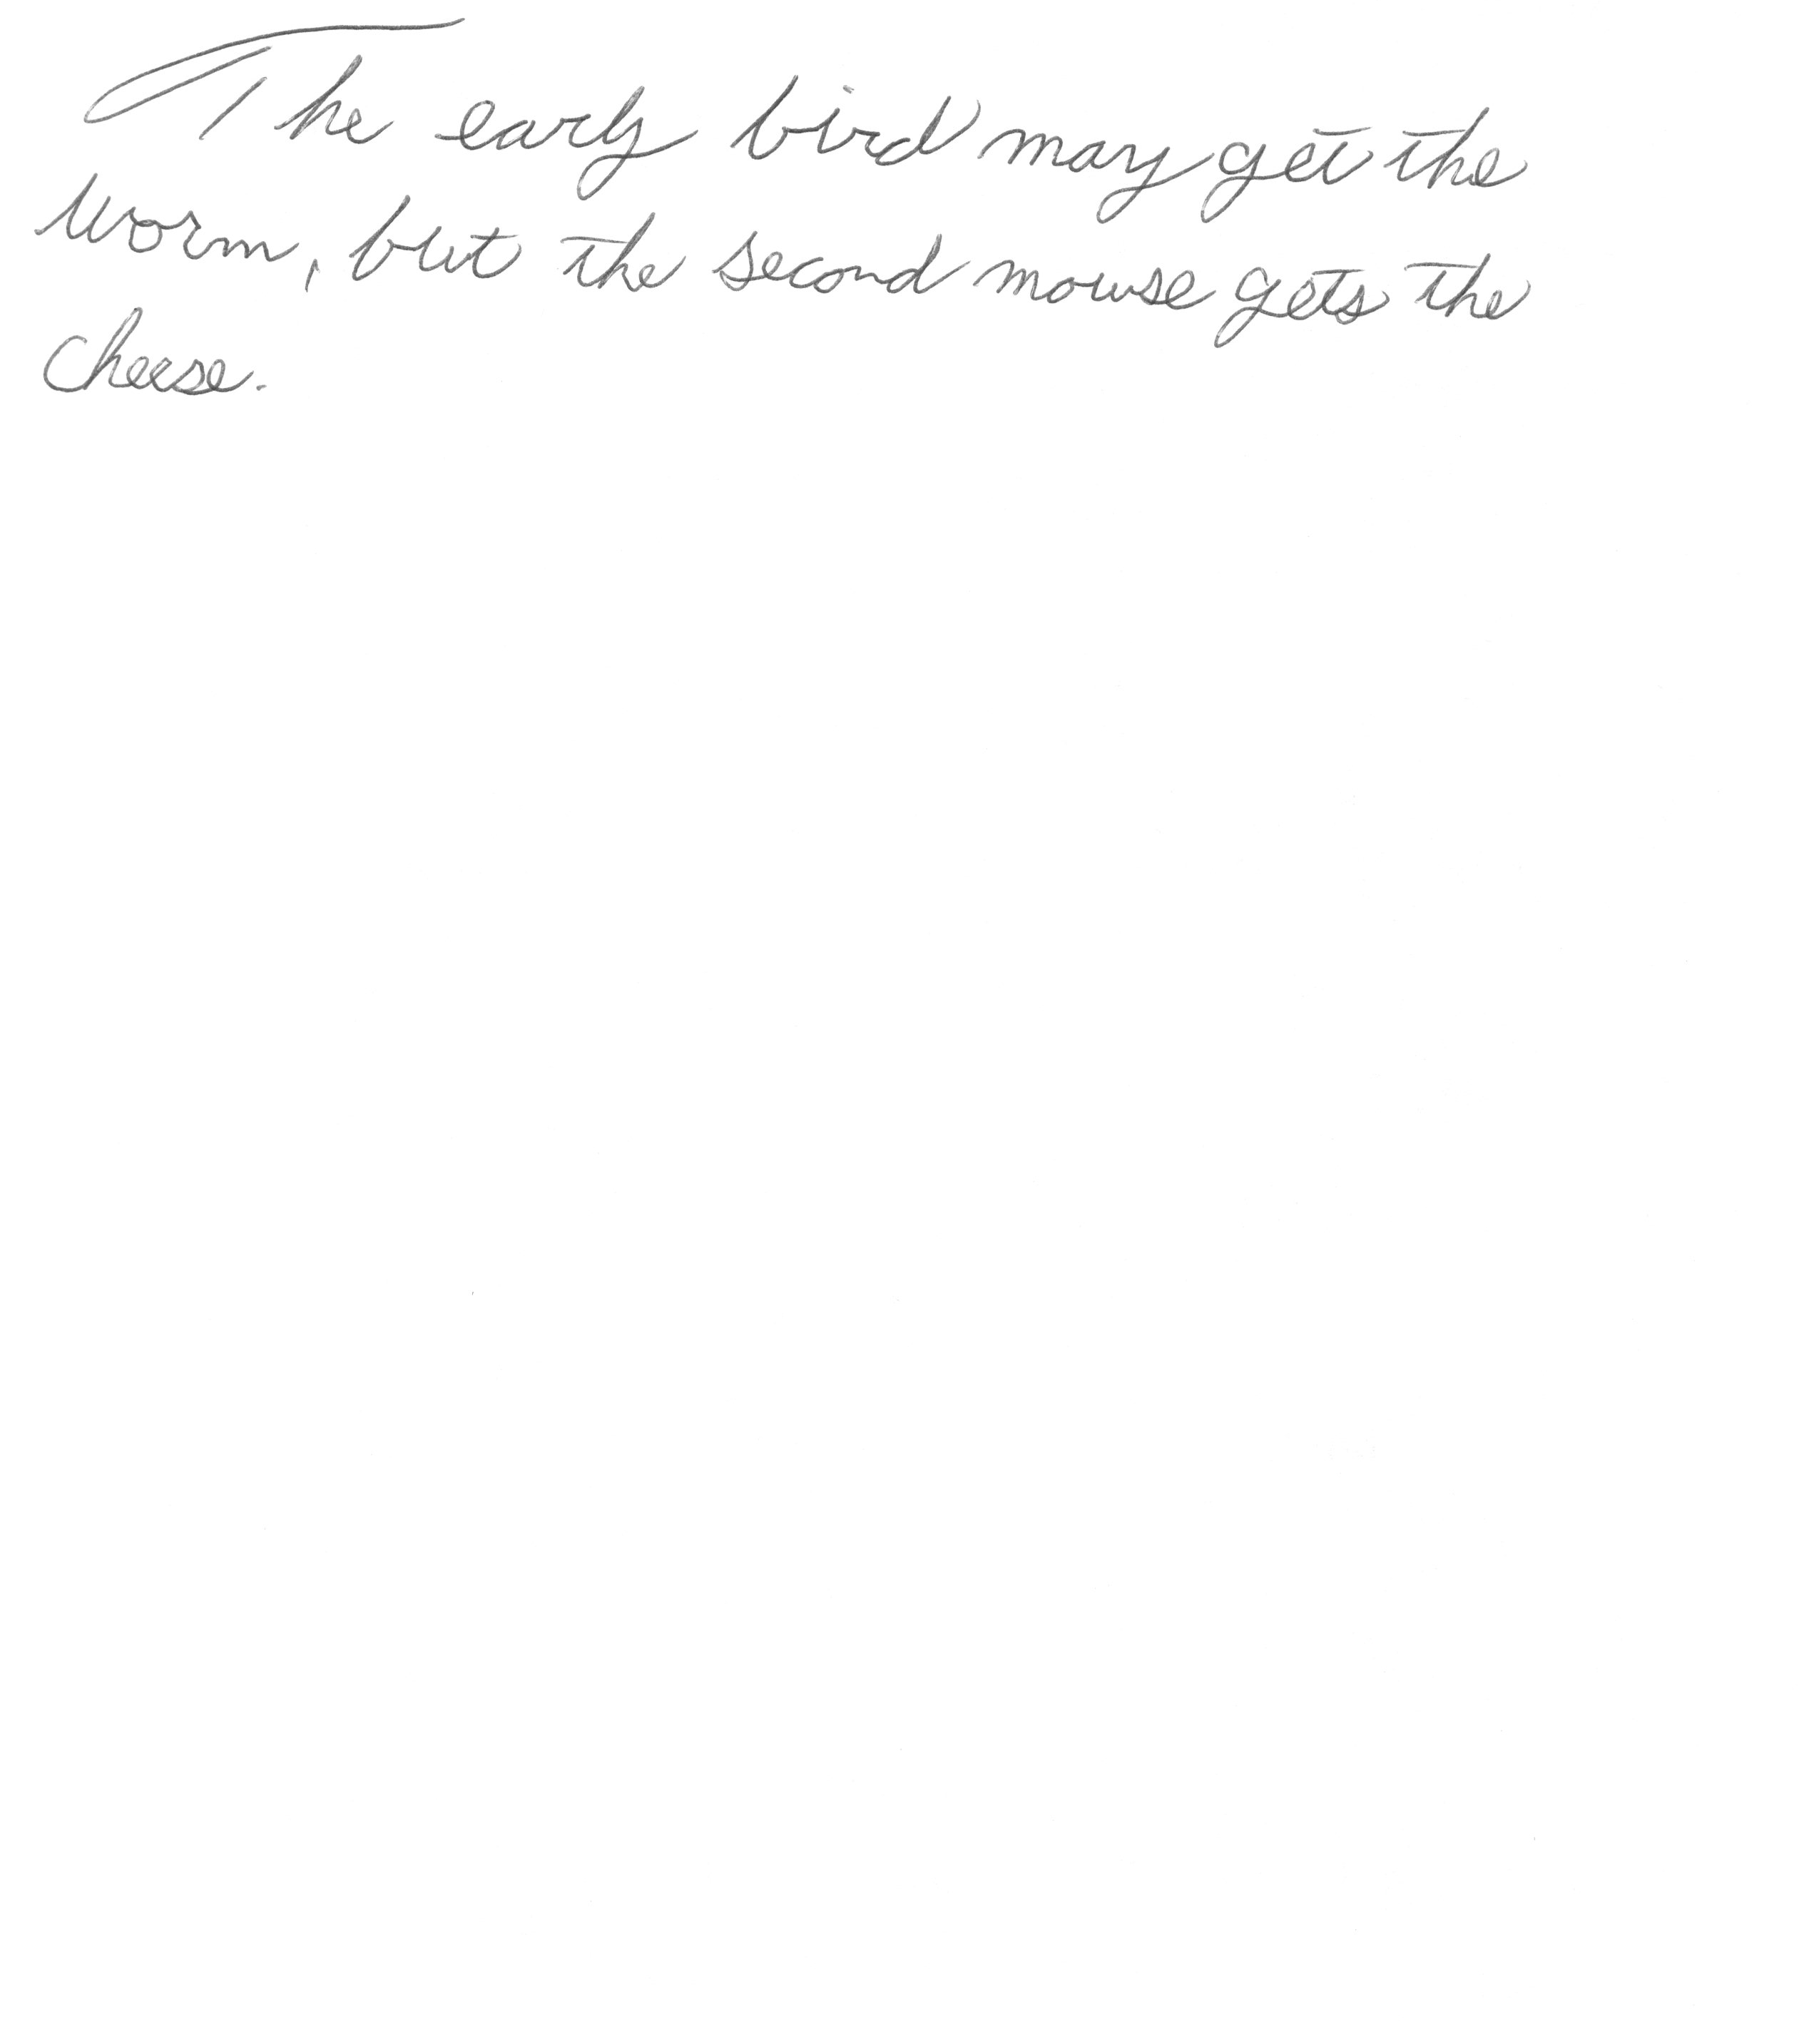 The early bird may get the
worm, but the second mouse gets the
cheese.